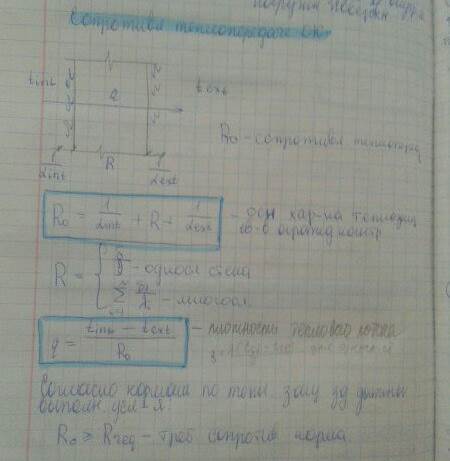 Сопротивл теплопередаче ОК
t int
t ext
Q
R
1/αint
1/αext
R₀ - сопротивл теплопер
R₀ = 1/αint + R + 1/αext
- осн хар-ка теплозащ
св-в огражд констр
R = { δ/λ - односл стена
∑ δi/λi - многосл
q = (t int - t ext) / R₀
- плотность теплового потока
Согласно нормам по тепл. защ зд должны
выполн. усл-я
R₀ ≥ Rreq - треб сопротив норма